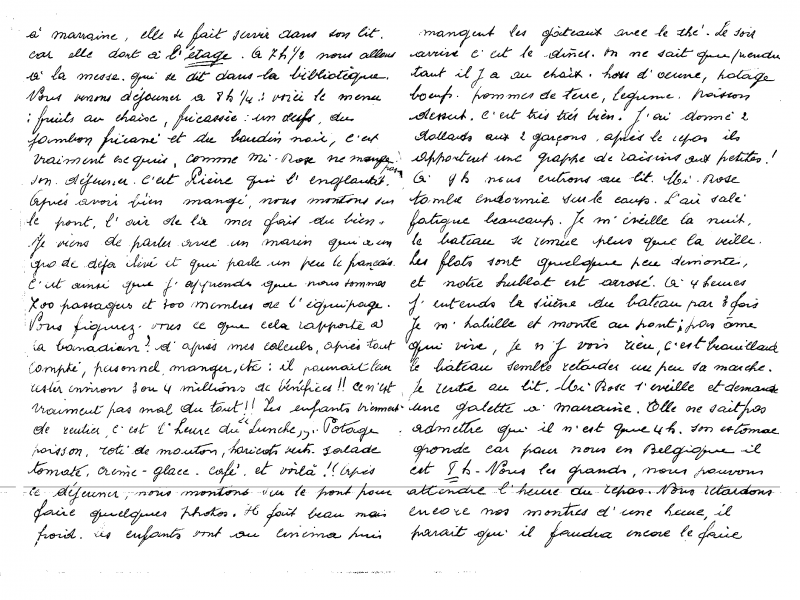 à marraine, elle se fait servir dans son lit.
car elle dort à l'étage. à 7h½ nous allons
à la messe. qui se dit dans la bibliotèque.
Nous venons déjeuner à 8h¼ : voici le menu
: fruits au choix, fricassée : un œufs, du
jambon fricané et du boudin noir, c'est
vraiment exquis, comme Mi-Rose ne mange pas
son déjeuner. c'est Pierre qui l'engloutit.
Après avoir bien mangé, nous montons sur
le pont, l'air de la mer fait du bien.
Je viens de parler avec un marin qui a un
grade déjà élevé et qui parle un peu le français.
C'est ainsi que j'apprends que nous sommes
700 passagers et 300 membres de l'équipage.
Vous figurez-vous ce que cela rapporte à
la Canadian? d'après mes calculs, après tout
compté, personnel, manger, etc : il pourrait leur
rester environ 3 ou 4 millions de bénéfices!! Ce n'est
vraiment pas mal du tout!! Les enfants viennent
de rentrer, c'est l'heure du "Lunche,,. Potage
poisson, roti de mouton, haricots verts. salade
tomate, crème-glace. café. et voilà!! Après
ce déjeuner, nous montons sur le pont pour
faire quelques photos. Il fait beau mais
froid. Les enfants vont au cinéma puis
mangent les gâteaux avec le thé. Le soir
arrive c'est le dîner. On ne sait que prendre
tant il y a au choix. hors d'œuvre, potage
boeuf. pommes de terre, legume. Poisson
dessert. C'est très très bien. J'ai donné 2
dollards aux 2 garçons, après le repas ils
apportent une graphe de raisins aux petites!
À 9h nous entrions au lit. Mi-Rose
tombe endormie sur le coups. L'air salé
fatigue beaucoup. Je m'éveille la nuit,
le bateau se remue plus que la veille.
Les flots sont quelque peu demonté,
et notre hublot est arrosé. À 4 heures
j'entends la sirène du bateau par 3 fois
Je m'habille et monte au pont; pas âme
qui vive, je n'y vois rien, c'est brouillard
le bateau semble retarder un peu sa marche.
Je rentre au lit. Mi-Rose s'éveille et demande
une galette à marraine. Elle ne sait pas
admettre qu'il n'est que 4h. Son estomac
gronde car pour nous en Belgique il
est 8h. Nous les grands, nous pouvons
attendre l'heure du repas. Nous retardons
encore nos montres d'une heure, il
parait qu'il faudra encore le faire